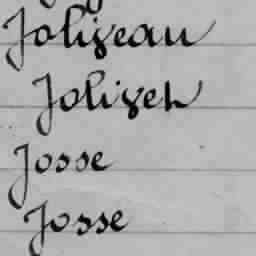 Joliveau
Jolivet
Josse
Josse